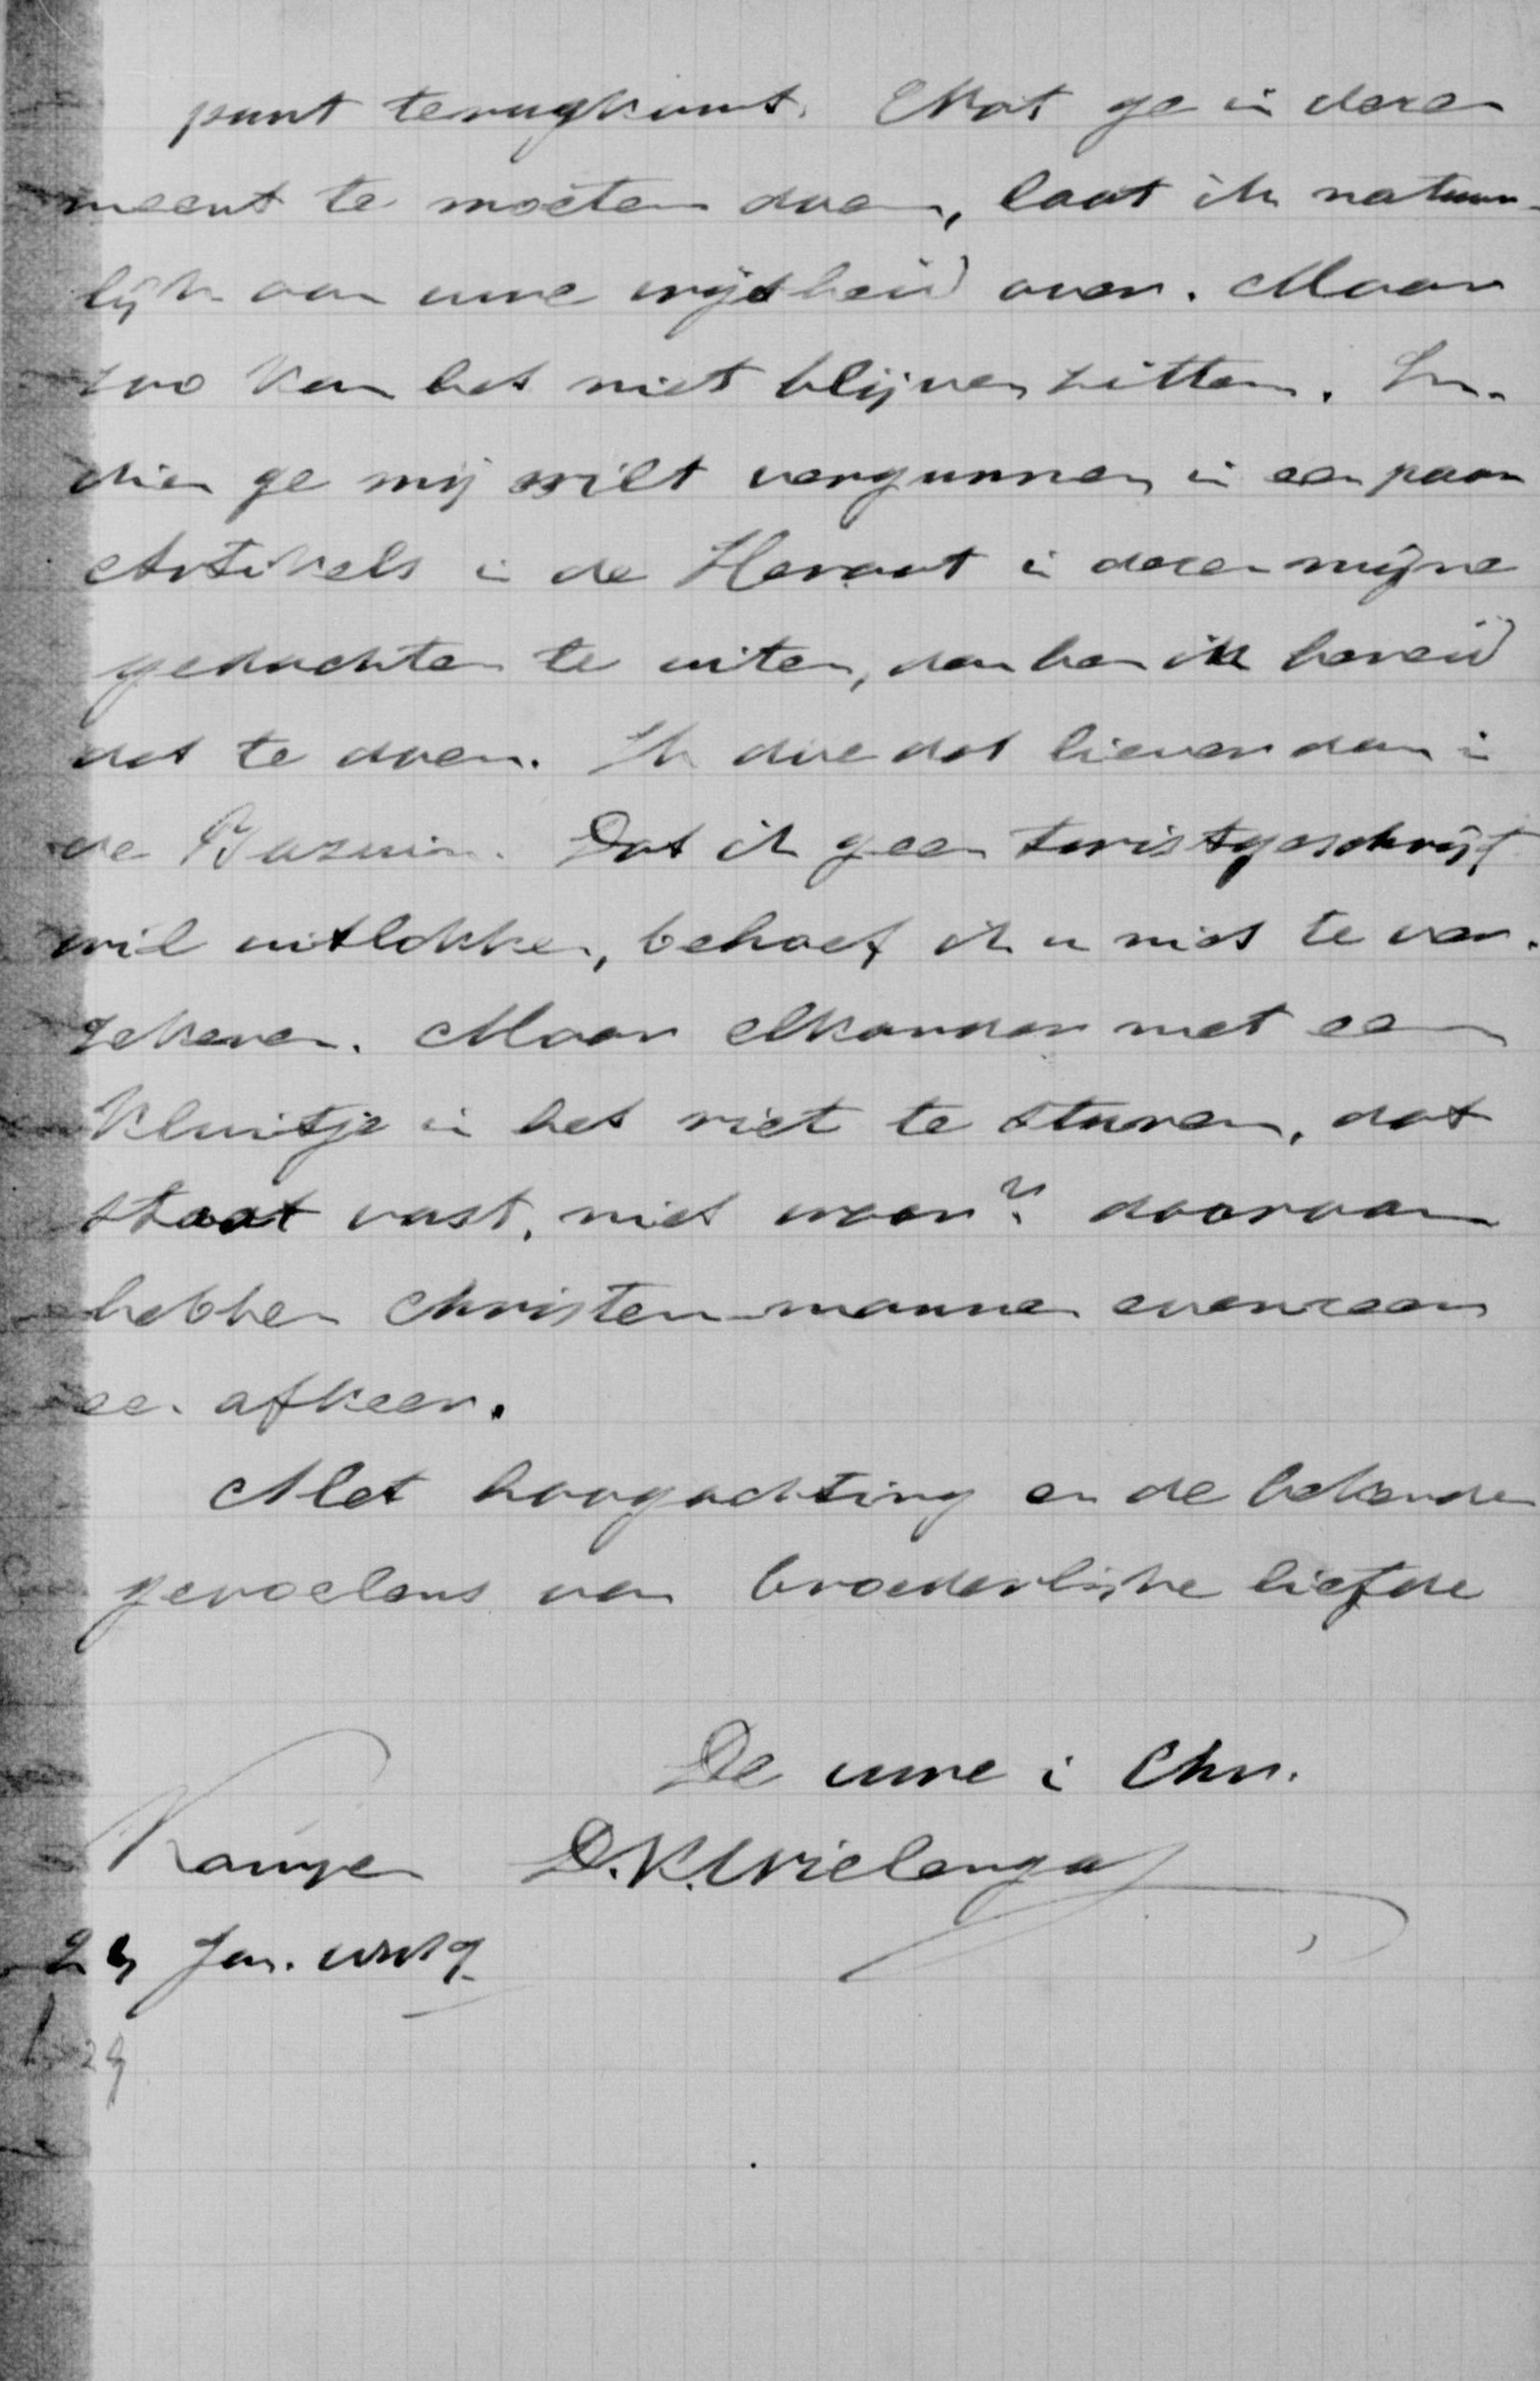 punt terugkomt. Wat ge in dezen
meent te moeten doen, laat ik natuur-
lijk aan uwe wijsheid over. Maar
zoo kan het niet blijven zitten. In-
dien ge mij wilt vergunnen, in een paar
Artikels in de Heraut in dezen mijne
gedachten te uiten, dan ben ik bereid
dat te doen. Ik doe dat liever dan in
de Bazuin. Dat ik geen twistgeschrijf
wil uitlokken, behoef ik u niet te ver-
zekeren. Maar elkander met een
kluitje in het riet te sturen, dat
staat vast, niet waar? daarvan
hebben Christen-mannen evenzeer
een afkeer.
Met hoogachting en de bekende
gevoelens van broederlijke liefde
De uwe in Chr.
Kampen D.K. Wielenga
Jan.